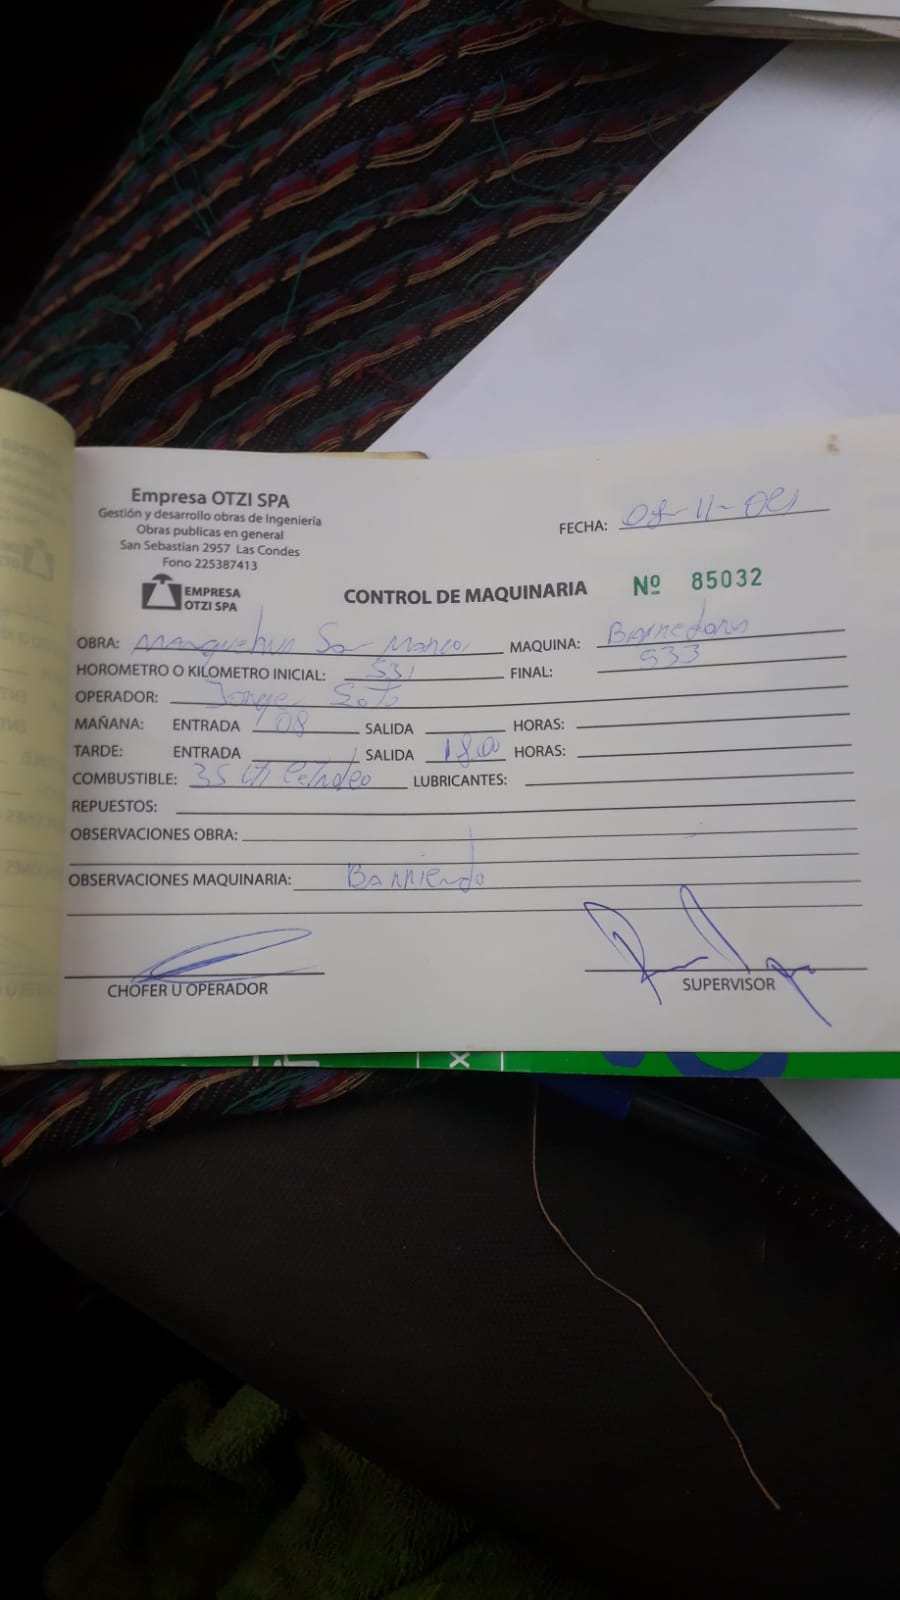 Empresa OTZI SPA
Gestión y desarrollo obras de Ingeniería
Obras publicas en general
San Sebastian 2957 Las Condes
Fono 225387413
EMPRESA
OTZI SPA
FECHA: 08-11-
CONTROL DE MAQUINARIA Nº 85032
OBRA: Manquehue San Marcos MAQUINA: Barredora
HOROMETRO O KILOMETRO INICIAL: 531 FINAL: 533
OPERADOR: Jorge Soto
MAÑANA: ENTRADA 08 SALIDA HORAS:
TARDE: ENTRADA SALIDA 18 HORAS:
COMBUSTIBLE: 35 Lt Petroleo LUBRICANTES:
REPUESTOS:
OBSERVACIONES OBRA:
OBSERVACIONES MAQUINARIA: Barriendo
CHOFER U OPERADOR SUPERVISOR